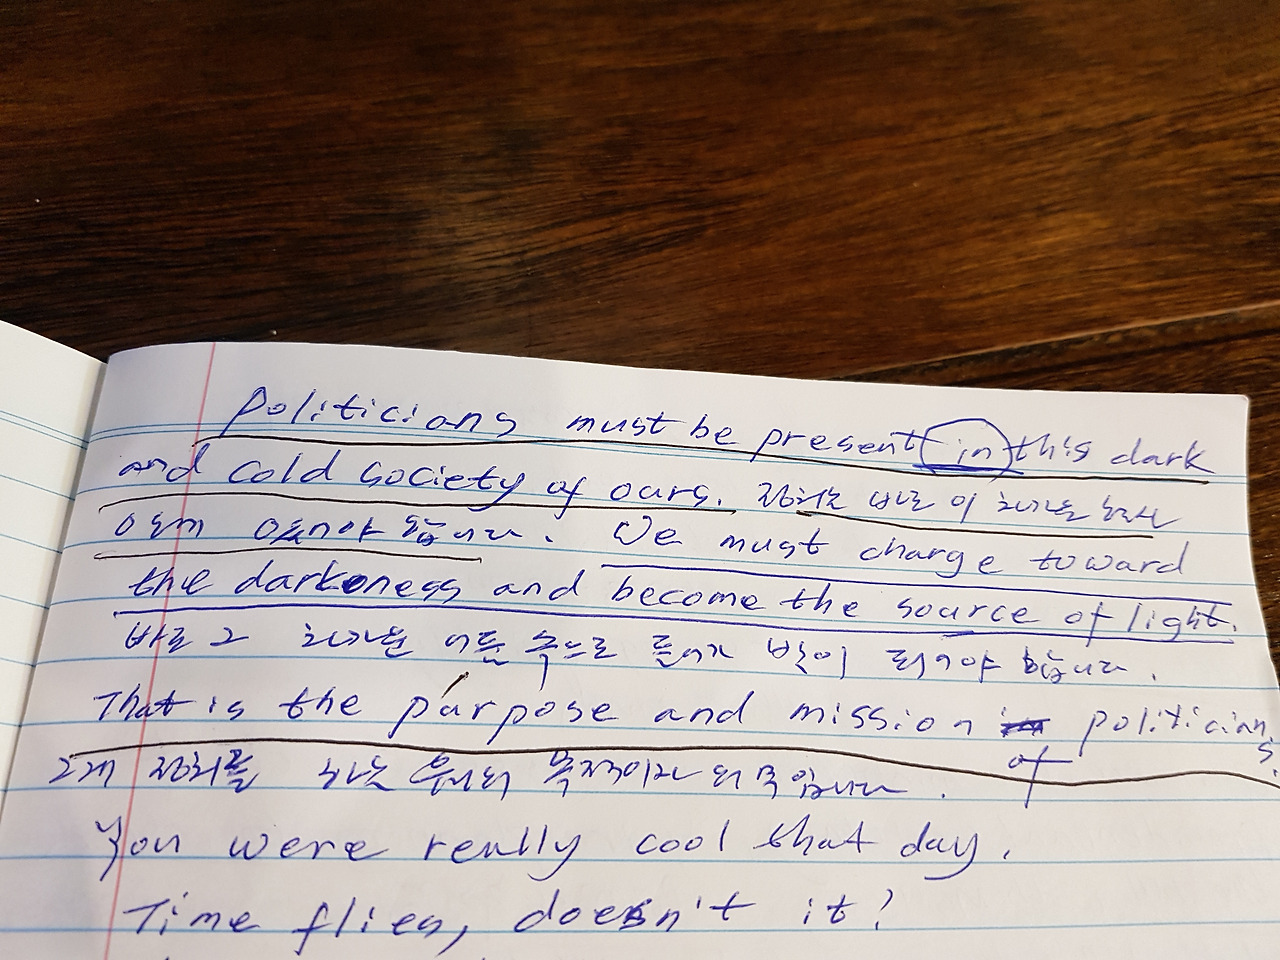 Politicians must be present in this dark
and cold society of ours. 정치는 바로 이 차가운 현실
안에 있어야 합니다. We must charge toward
the darkness and become the source of light.
바로 그 차가운 어둠 속으로 들어가 빛이 되어야 합니다.
That is the purpose and mission of politicians.
그게 정치를 하는 목적이자 의무입니다.
You were really cool that day.
Time flies, doesn't it?